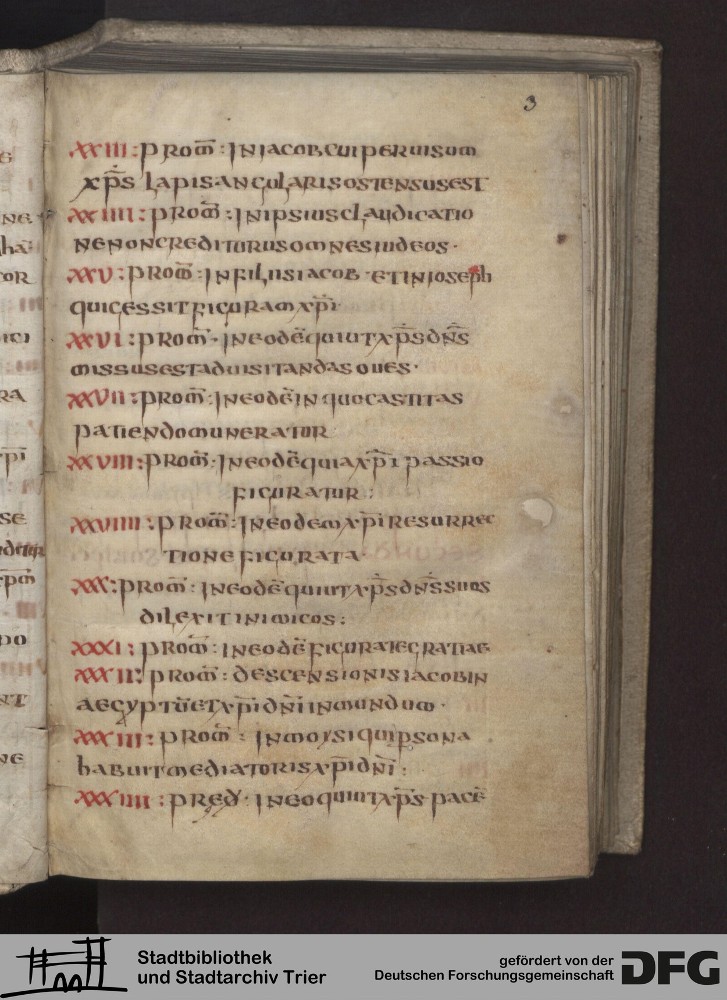 3
XXIII: prom̄: in iacob cui per uisum
xp̄s lapis angularis ostensus est
XXIIII: prom̄: in ipsius claudicatio
ne non credituros omnes iudeos·
XXV: prom̄: in filiis iacob et in ioseph
qui gessit figuram xp̄i
XXVI: prom̄· in eodē quiuit xp̄s dn̄s
missus est ad uisitandas oues·
XXVII: prom̄: in eodē in quo castitas
patiendo muneratur
XXVIII: prom̄: in eodē quia xp̄i passio
figuratur:
XXVIIII: prom̄: in eodem xp̄i resurrec
tione figurata·
XXX: prom̄: in eodē quiuit xp̄s dn̄s suos
dilexit inimicos:
XXXI: prom̄: in eodē figurate gratiae
XXXII: prom̄: descensionis iacob in
aegyptū et xp̄i dn̄i in mundum·
XXXIII: prom̄: in moysi qui psona
habuit mediatoris xp̄i dn̄i:
XXXIIII: pred· in eo quiuit xp̄s pacē
Stadtbibliothek
und Stadtarchiv Trier
gefördert von der
Deutschen Forschungsgemeinschaft
DFG